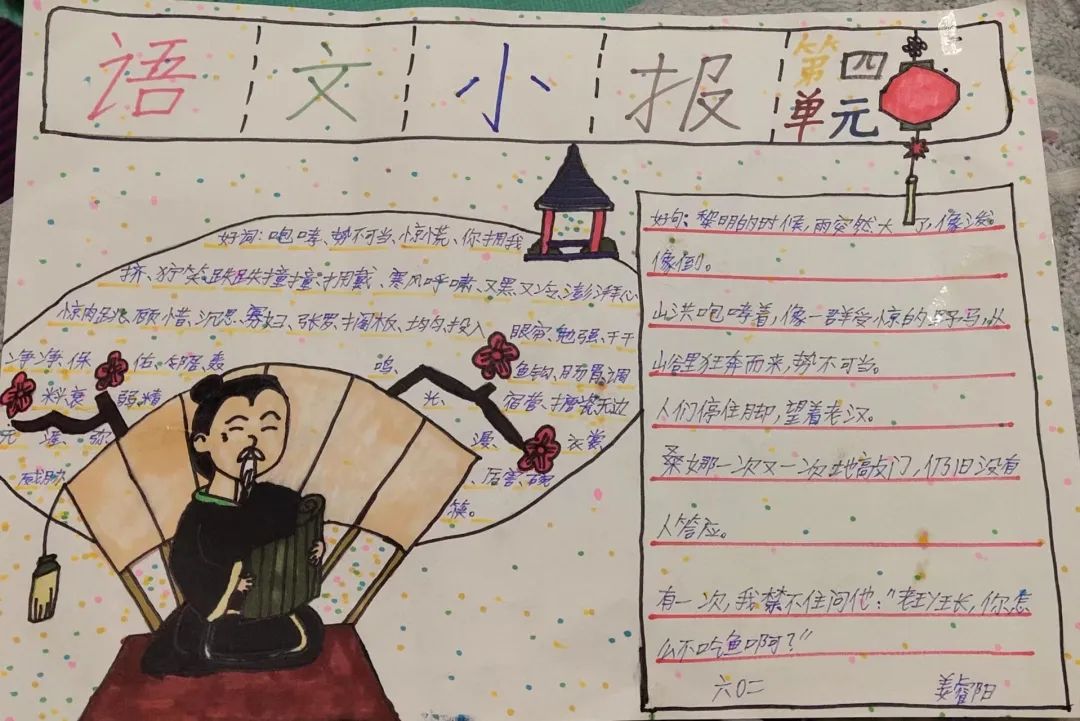 语文小报
第四
单元
好词:咆哮、势不可当、惊慌、你拥我
挤、狞笑、跌跌撞撞、拥戴、寒风呼啸、又黑又冷、澎湃、心
惊肉跳、顾惜、沉思、寡妇、张罗、搁板、均匀、投入
眼帘、勉强、干干
净净、保佑、邻居、裹
呜、
鱼钩、肠胃、调
料、衰弱、精
光、
宿营、搪瓷、无边
衣裳
威胁
、厉害、碗
筷。
好句:黎明的时候,雨突然大了,像泼。
像倒。
山洪咆哮着,像一群受惊的野马,从
山谷里狂奔而来,势不可当。
人们停住脚,望着老汉。
桑娜一次又一次地敲门,仍旧没有
人答应。
有一次,我禁不住问他:"老班长,你怎
么不吃鱼啊?"
六0二
姜睿阳